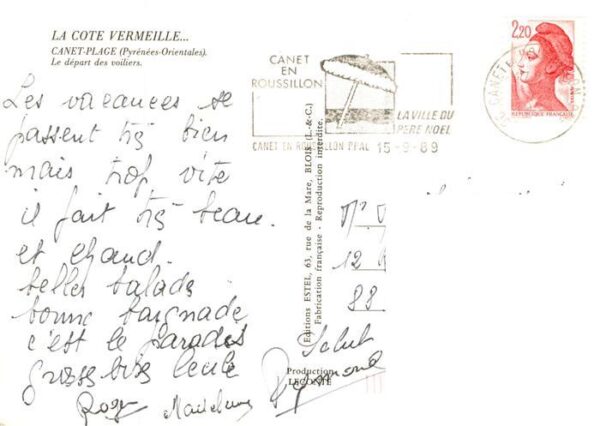 LA COTE VERMEILLE...
CANET-PLAGE (Pyrénées-Orientales).
Le départ des voiliers.
Les vacances se
passent très bien
mais trop vite
il fait très beau.
et chaud.
belles balades
bonne baignade
c'est le Paradis
grosses bises
Roger
CANET
EN
ROUSSILLON
LA VILLE DU
PERE NOEL
CANET EN ROUSSILLON PPAL 15-9-89
2,20
REPUBLIQUE FRANÇAISE
Editions ESTEL, 63, rue de la Mare, BLOIS (L.-&-C.)
Fabrication française - Reproduction interdite.
12
88
Salut
Production
LECONTE